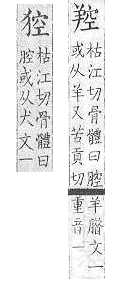 羫
枯江切骨體曰腔
或从羊又苦貢切
羊腊文一
重音一
㹤
枯江切骨體曰
腔或从犬文一